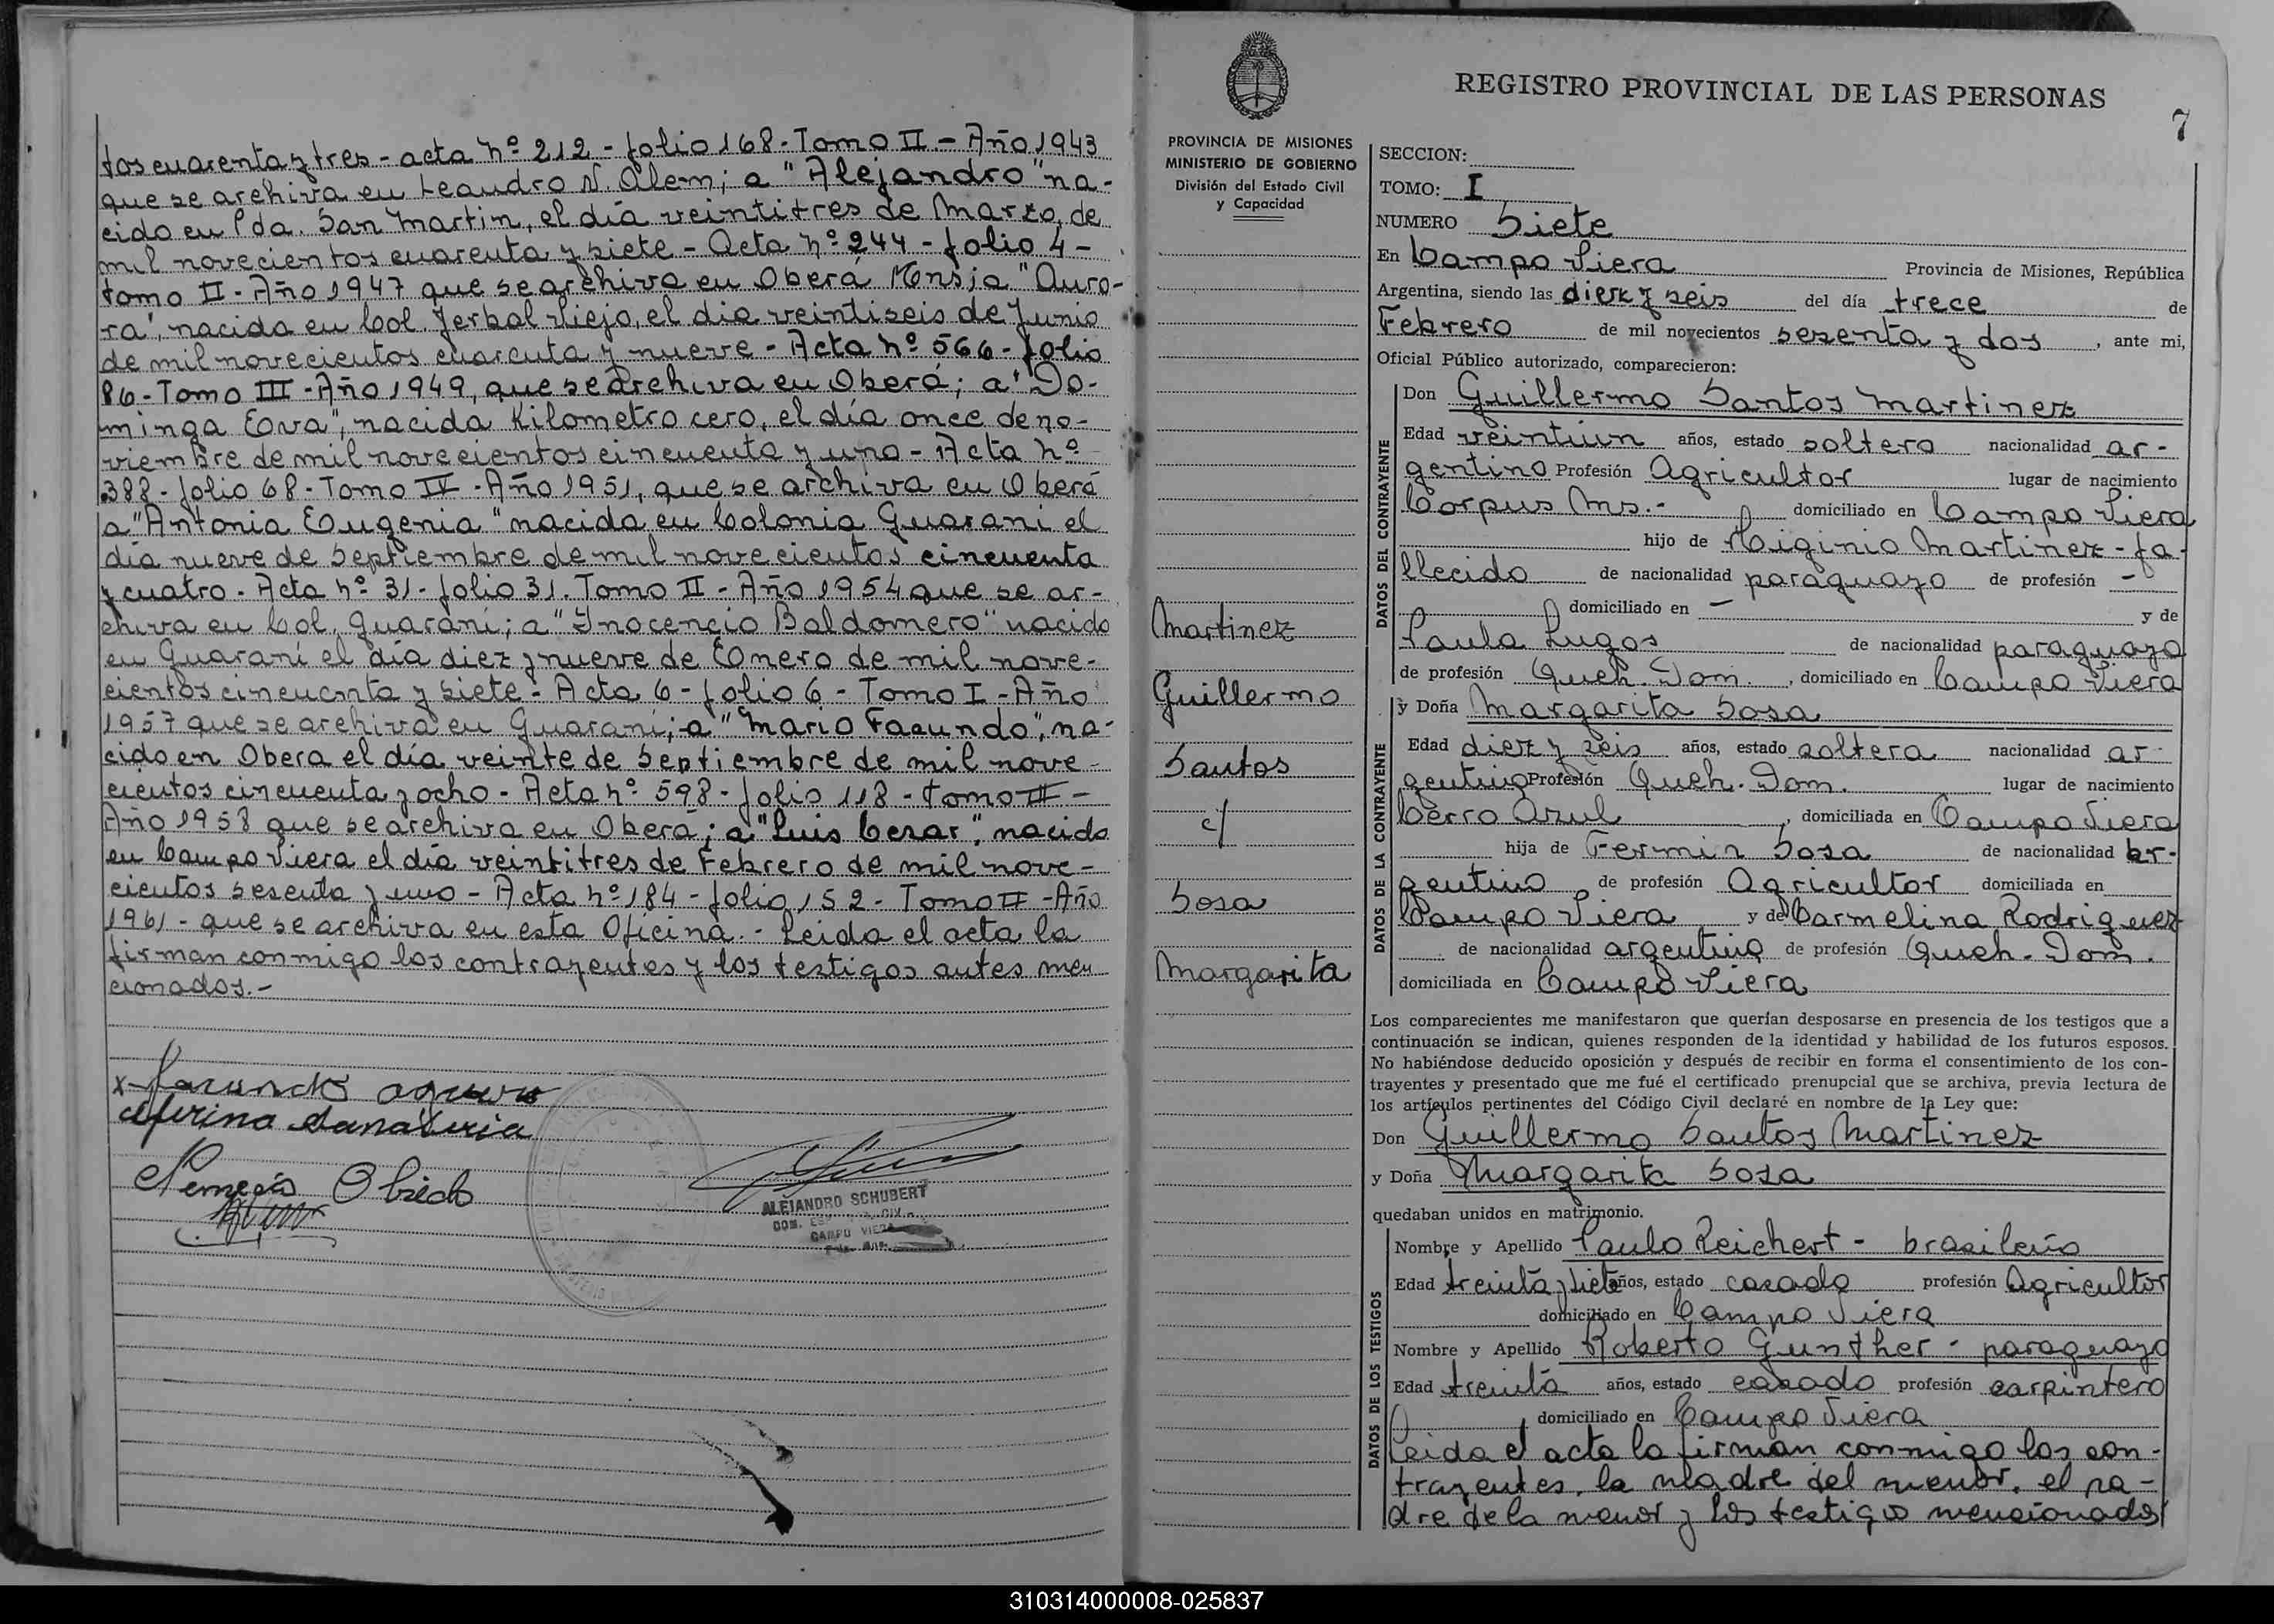 tos cuarenta y tres - acta nº 212 - folio 168 - Tomo II - Año 1943
que se archiva en Leandro N. Alem; a "Alejandro" na-
cido en Pda. San Martin, el día veintitres de Marzo, de
mil novecientos cuarenta y siete - Acta nº 244 - folio 4 -
tomo II - Año 1947 que se archiva en Oberá Mnes; a "Auro-
ra", nacida en Col. Yerbal Viejo, el dia veintiseis de Junio
de mil novecientos cuarenta y nueve - Acta nº 566 - folio
86 - Tomo III - Año 1949, que se archiva en Oberá; a "Do-
minga Eva", nacida Kilometro cero, el día once de no-
viembre de mil novecientos cincuenta y uno - Acta nº
388 - folio 68 - Tomo IV - Año 1951, que se archiva en Oberá
a "Antonia Eugenia" nacida en Colonia Guarani el
día nueve de Septiembre de mil novecientos cincuenta
y cuatro - Acta nº 31 - folio 31. Tomo II - Año 1954 que se ar-
chiva en Col. Guaraní; a "Inocencio Baldomero" nacido
en Guaraní el día diez y nueve de Enero de mil nove-
cientos cincuenta y siete - Acta 6 - folio 6 - Tomo I - Año
1957 que se archiva en Guaraní; a "Mario Facundo", na-
cido en Obera el día veinte de Septiembre de mil nove-
cientos cincuenta y ocho - Acta nº 598 - folio 118 - tomo III -
Año 1958 que se archiva en Oberá; a "Luis Cesar", nacido
en Campo Viera el día veintitres de Febrero de mil nove-
cientos sesenta y uno - Acta nº 184 - folio 152 - Tomo II - Año
1961 - que se archiva en esta Oficina. - Leida el acta la
firman conmigo los contrayentes y los testigos antes men
cionados. -
x Facundo
Obiedo
ALEJANDRO SCHUBERT
CAMPO VIERA
PROVINCIA DE MISIONES
MINISTERIO DE GOBIERNO
División del Estado Civil
y Capacidad
Martinez
Guillermo
Santos
c/
Sosa
Margarita
REGISTRO PROVINCIAL DE LAS PERSONAS
7
SECCION:
TOMO: I
NUMERO Siete
En Campo Viera Provincia de Misiones, República
Argentina, siendo las diez y seis del día trece de
Febrero de mil novecientos sesenta y dos, ante mi,
Oficial Público autorizado, comparecieron:
DATOS DEL CONTRAYENTE
Don Guillermo Santos Martinez
Edad veintiún años, estado soltero nacionalidad ar-
gentino Profesión Agricultor lugar de nacimiento
Corpus Mns. - domiciliado en Campo Viera
hijo de Higinio Martinez - fa-
llecido de nacionalidad paraguayo de profesión -
domiciliado en - y de
Paula Lugos de nacionalidad paraguaya
de profesión Queh. Dom., domiciliado en Campo Viera
DATOS DE LA CONTRAYENTE
y Doña Margarita Sosa
Edad diez y seis años, estado soltera nacionalidad ar-
gentina Profesión Queh. Dom. lugar de nacimiento
Cerro Azul, domiciliada en Campo Viera
hija de Fermin Sosa de nacionalidad ar-
gentino de profesión Agricultor domiciliada en
Campo Viera y de Carmelina Rodriguez
de nacionalidad argentina de profesión Queh. Dom.
domiciliada en Campo Viera
Los comparecientes me manifestaron que querían desposarse en presencia de los testigos que a
continuación se indican, quienes responden de la identidad y habilidad de los futuros esposos.
No habiéndose deducido oposición y después de recibir en forma el consentimiento de los con-
trayentes y presentado que me fué el certificado prenupcial que se archiva, previa lectura de
los artículos pertinentes del Código Civil declaré en nombre de la Ley que:
Don Guillermo Santos Martinez
y Doña Margarita Sosa
quedaban unidos en matrimonio.
DATOS DE LOS TESTIGOS
Nombre y Apellido Paulo Reichert - brasileño
Edad treinta y siete años, estado casado profesión Agricultor
domiciliado en Campo Viera
Nombre y Apellido Roberto Gunther - paraguayo
Edad treinta años, estado casado profesión carpintero
domiciliado en Campo Viera
Leida el acta la firman conmigo los con-
trayentes, la madre del menor, el pa-
dre de la menor y los testigos mencionados
310314000008-025837